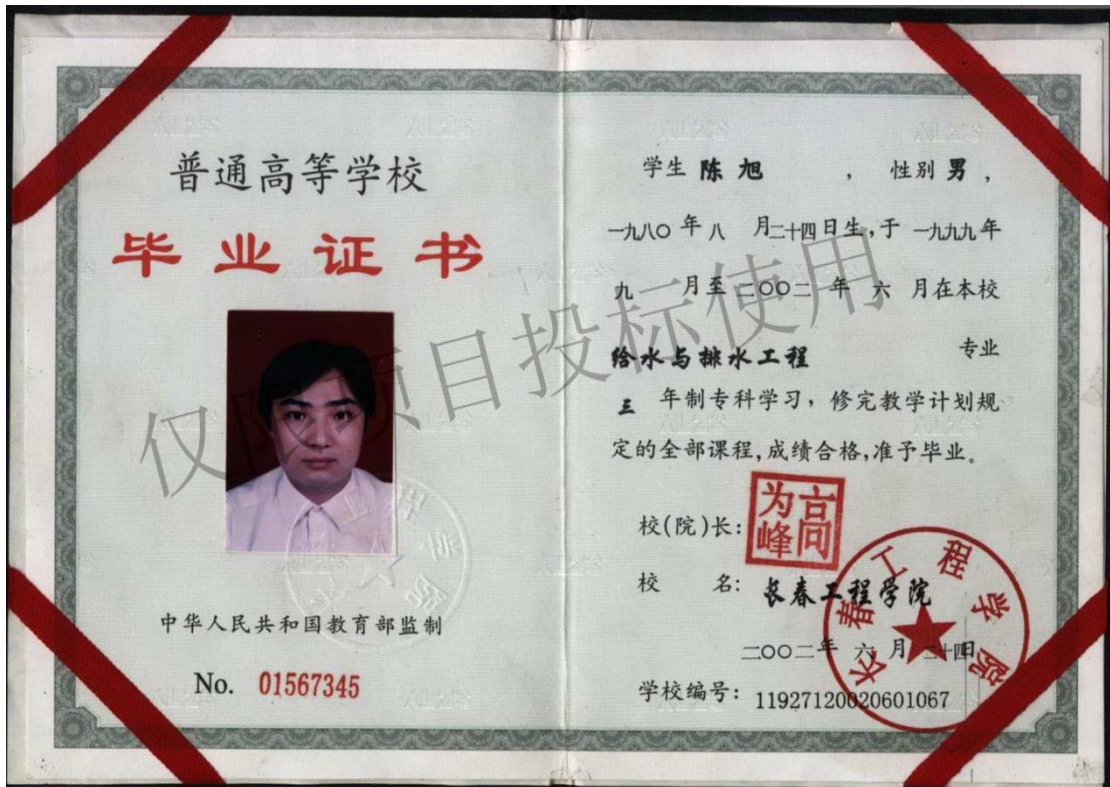 普通高等学校
毕业证书
中华人民共和国教育部监制
No. 01567345
学生 陈旭 ， 性别 男 ，
一九八〇年八 月二十四日生,于 一九九九年
九 月至 二〇〇二 年 六 月在本校
给水与排水工程 专业
三 年制专科学习，修完教学计划规
定的全部课程,成绩合格,准予毕业。
校(院)长:
高为峰
校 名: 长春工程学院
二〇〇二年 六 月 二十四日
学校编号: 11927120020601067
长春工程学院
仅限项目投标使用